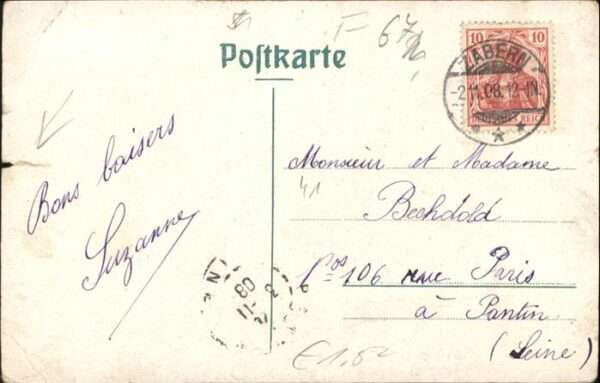 Postkarte
67
10 10
ZABERN
-2.11.08.12-1N.
REICH
Bons baisers
Suzanne
Monsieur et Madame
41
Bechdold
Nos 106 rue Paris
à Pantin
(Seine)
2 -11 08
€1,50